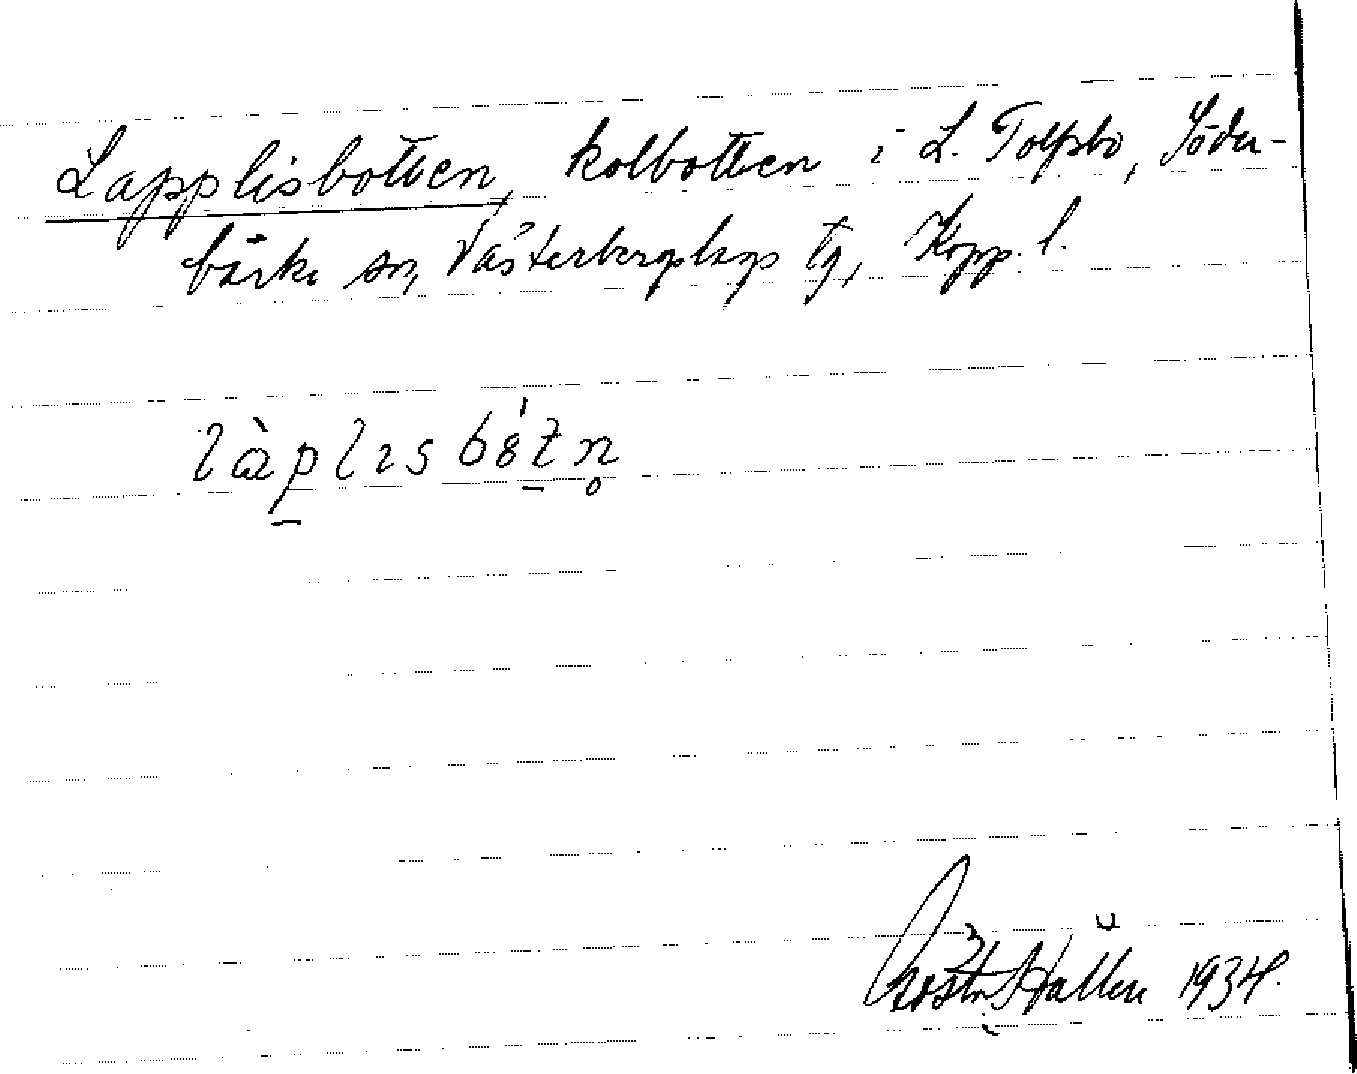 Lapplisbotten, kolbotten i L. Tolfsbo, Söder-
bärke sn, Västerbergslags tg, Kopp. l.
làplɪsbȯtn̥
Hallén 1934.